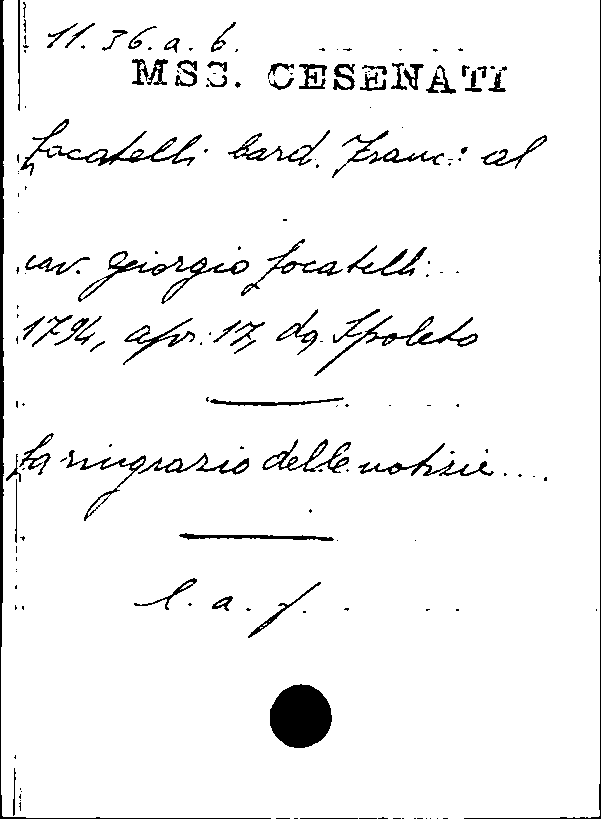 11. 36. a. b.
MSS. CESENATI
Locatelli Card. Franc: al
cav. Giorgio Locatelli.
1794, apr. 17, da Spoleto
La ringrazio delle notizie....
l. a. f.